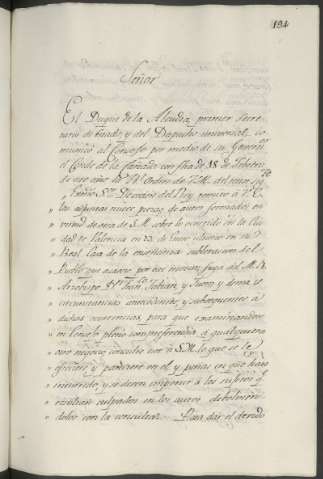 194
Señor
El Duque de la Alcudia, primer Secre-
tario de Estado, y del Despacho universal, co-
municó al Consejo por medio de su Governor
el Conde de la Cañada con fha de 18 de Febrero
de este año la Rl Orden de S.M. del tenor sigte
" Exmo Sr De orden del Rey remito a V.E.
" las adjuntas nueve piezas de autos formados en
" virtud de otra de S.M. sobre lo ocurrido en la Ciu-
" dad de Valencia en 23 de Enero ultimo en la
" Real Casa de la enseñanza sublevacion del
" Pueblo que acaeció por este incidente fuga del M.R.
" Arzobispo Dn Franco Fabian y Fuero y demas
" circunstancias antecedentes, y subsiguientes a
" dichas ocurrencias, para que examinandose
" en Consejo pleno con preferencia a qualquiera
" otro negocio consulte a S.M. lo que se le
" ofreciere y pareciere en el, y penas en que han
" incurrido, y se deven imponer a los sugetos q.
" resultan culpados en los autos debolvien-
" dolos con la consulta. Para dar el devido